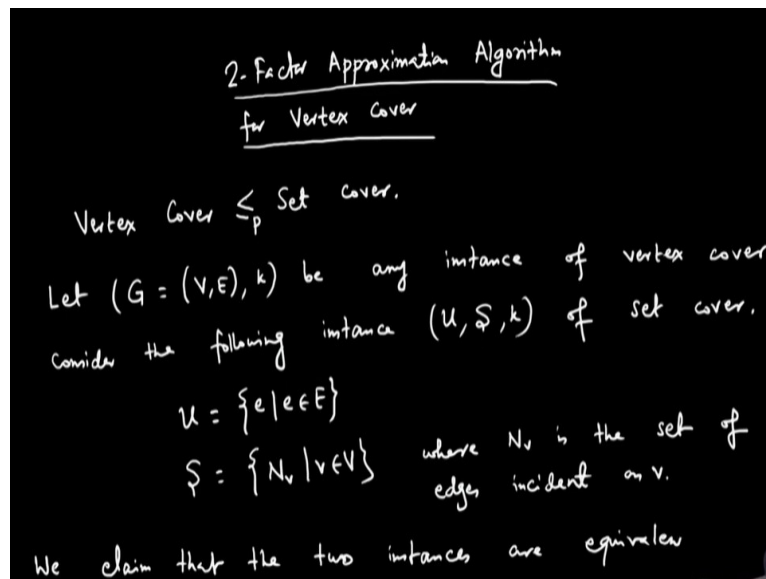 2-Factor Approximation Algorithm
for Vertex Cover
Vertex Cover ≤ₚ Set cover.
Let (G = (V,E), k) be any instance of vertex cover
Consider the following instance (U, S, k) of set cover.
U = {e | e ∈ E}
S = {Nᵥ | v ∈ V} where Nᵥ is the set of
edges incident on v.
We claim that the two instances are equivalen